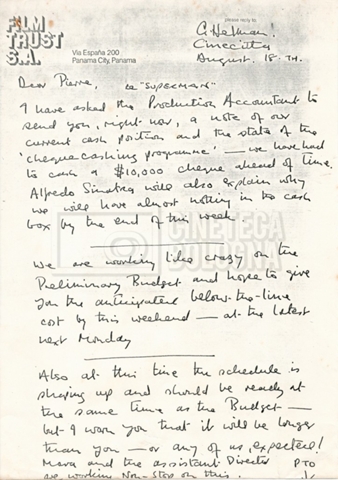 FILM
TRUST
S.A.
Via España 200
Panama City, Panama
please reply to
Cinecitta
August. 18.TH.
Dear Pierre, re "SUPERMAN"
I have asked the Production Accountant to
send you, right now, a note of our
current cash position and the state of the
'cheque cashing programme' — we have had
to cash a $10,000 cheque ahead of time.
Alfredo Sinatra will also explain why
we will have almost nothing in the cash
box by the end of this week
CINETECA
BOLOGNA
We are working like crazy on the
Preliminary Budget and hope to give
you the anticipated below-the-line
cost by this weekend — at the latest
next Monday
Also at this time the schedule is
shaping up and should be ready at
the same time as the Budget —
but I warn you that it will be longer
than you — or any of us, expected!
and the assistant Director PTO
are working Non-Stop on this.